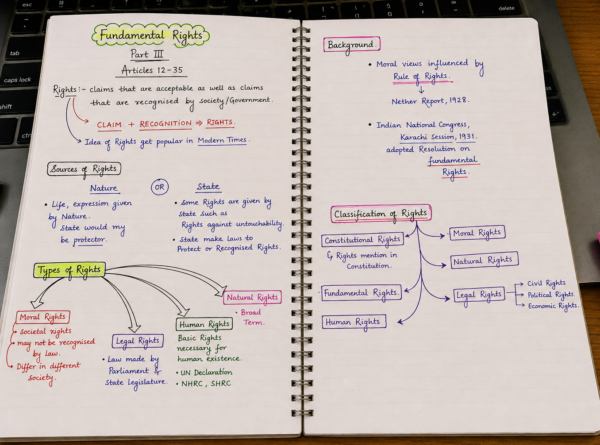 delete
caps lock
shift
Fundamental Rights
Part III
Articles 12-35
Rights :- claims that are acceptable as well as claims
that are recognised by society/Government.
CLAIM + RECOGNITION ⇒ RIGHTS.
Idea of Rights get popular in Modern Times.
Sources of Rights
Nature OR State
• Life, expression given
by Nature.
State would my
be protector.
• Some Rights are given by
State such as
Rights against untouchability.
• State make Laws to
Protect or Recognised Rights.
Types of Rights
Moral Rights
• Societal rights
• may not be recognised
by Law.
• Differ in different
Society.
Legal Rights
• Law made by
Parliament &
State Legislature.
Human Rights
Basic Rights
necessary for
human existence.
• UN Declaration
• NHRC, SHRC
Natural Rights
• Broad
Term.
Background.
• Moral views influenced by
Rule of Rights.
↓
Nether Report, 1928.
• Indian National Congress,
Karachi Session, 1931.
adopted Resolution on
fundamental
Rights.
Classification of Rights
Constitutional Rights
↳ Rights mention in
Constitution.
Fundamental Rights
Human Rights
Moral Rights
Natural Rights
Legal Rights
→ Civil Rights
→ Political Rights
→ Economic Rights.